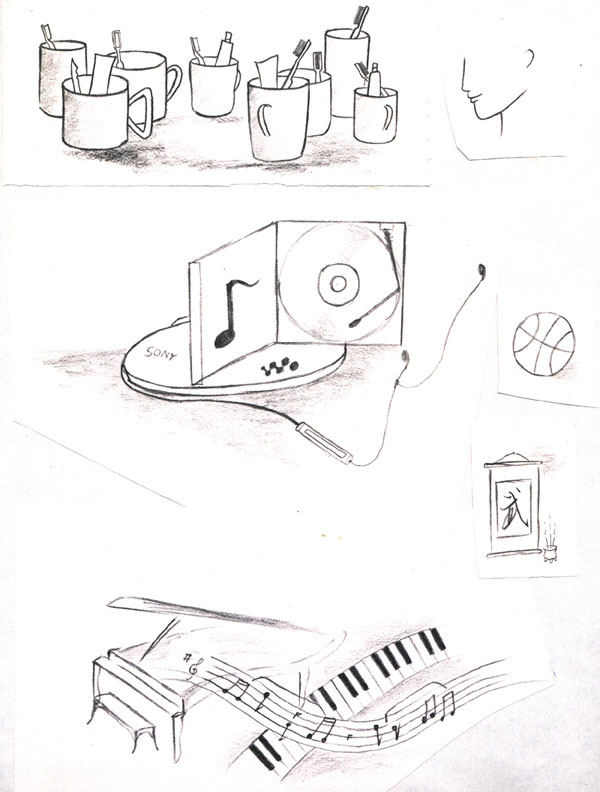 SONY
武